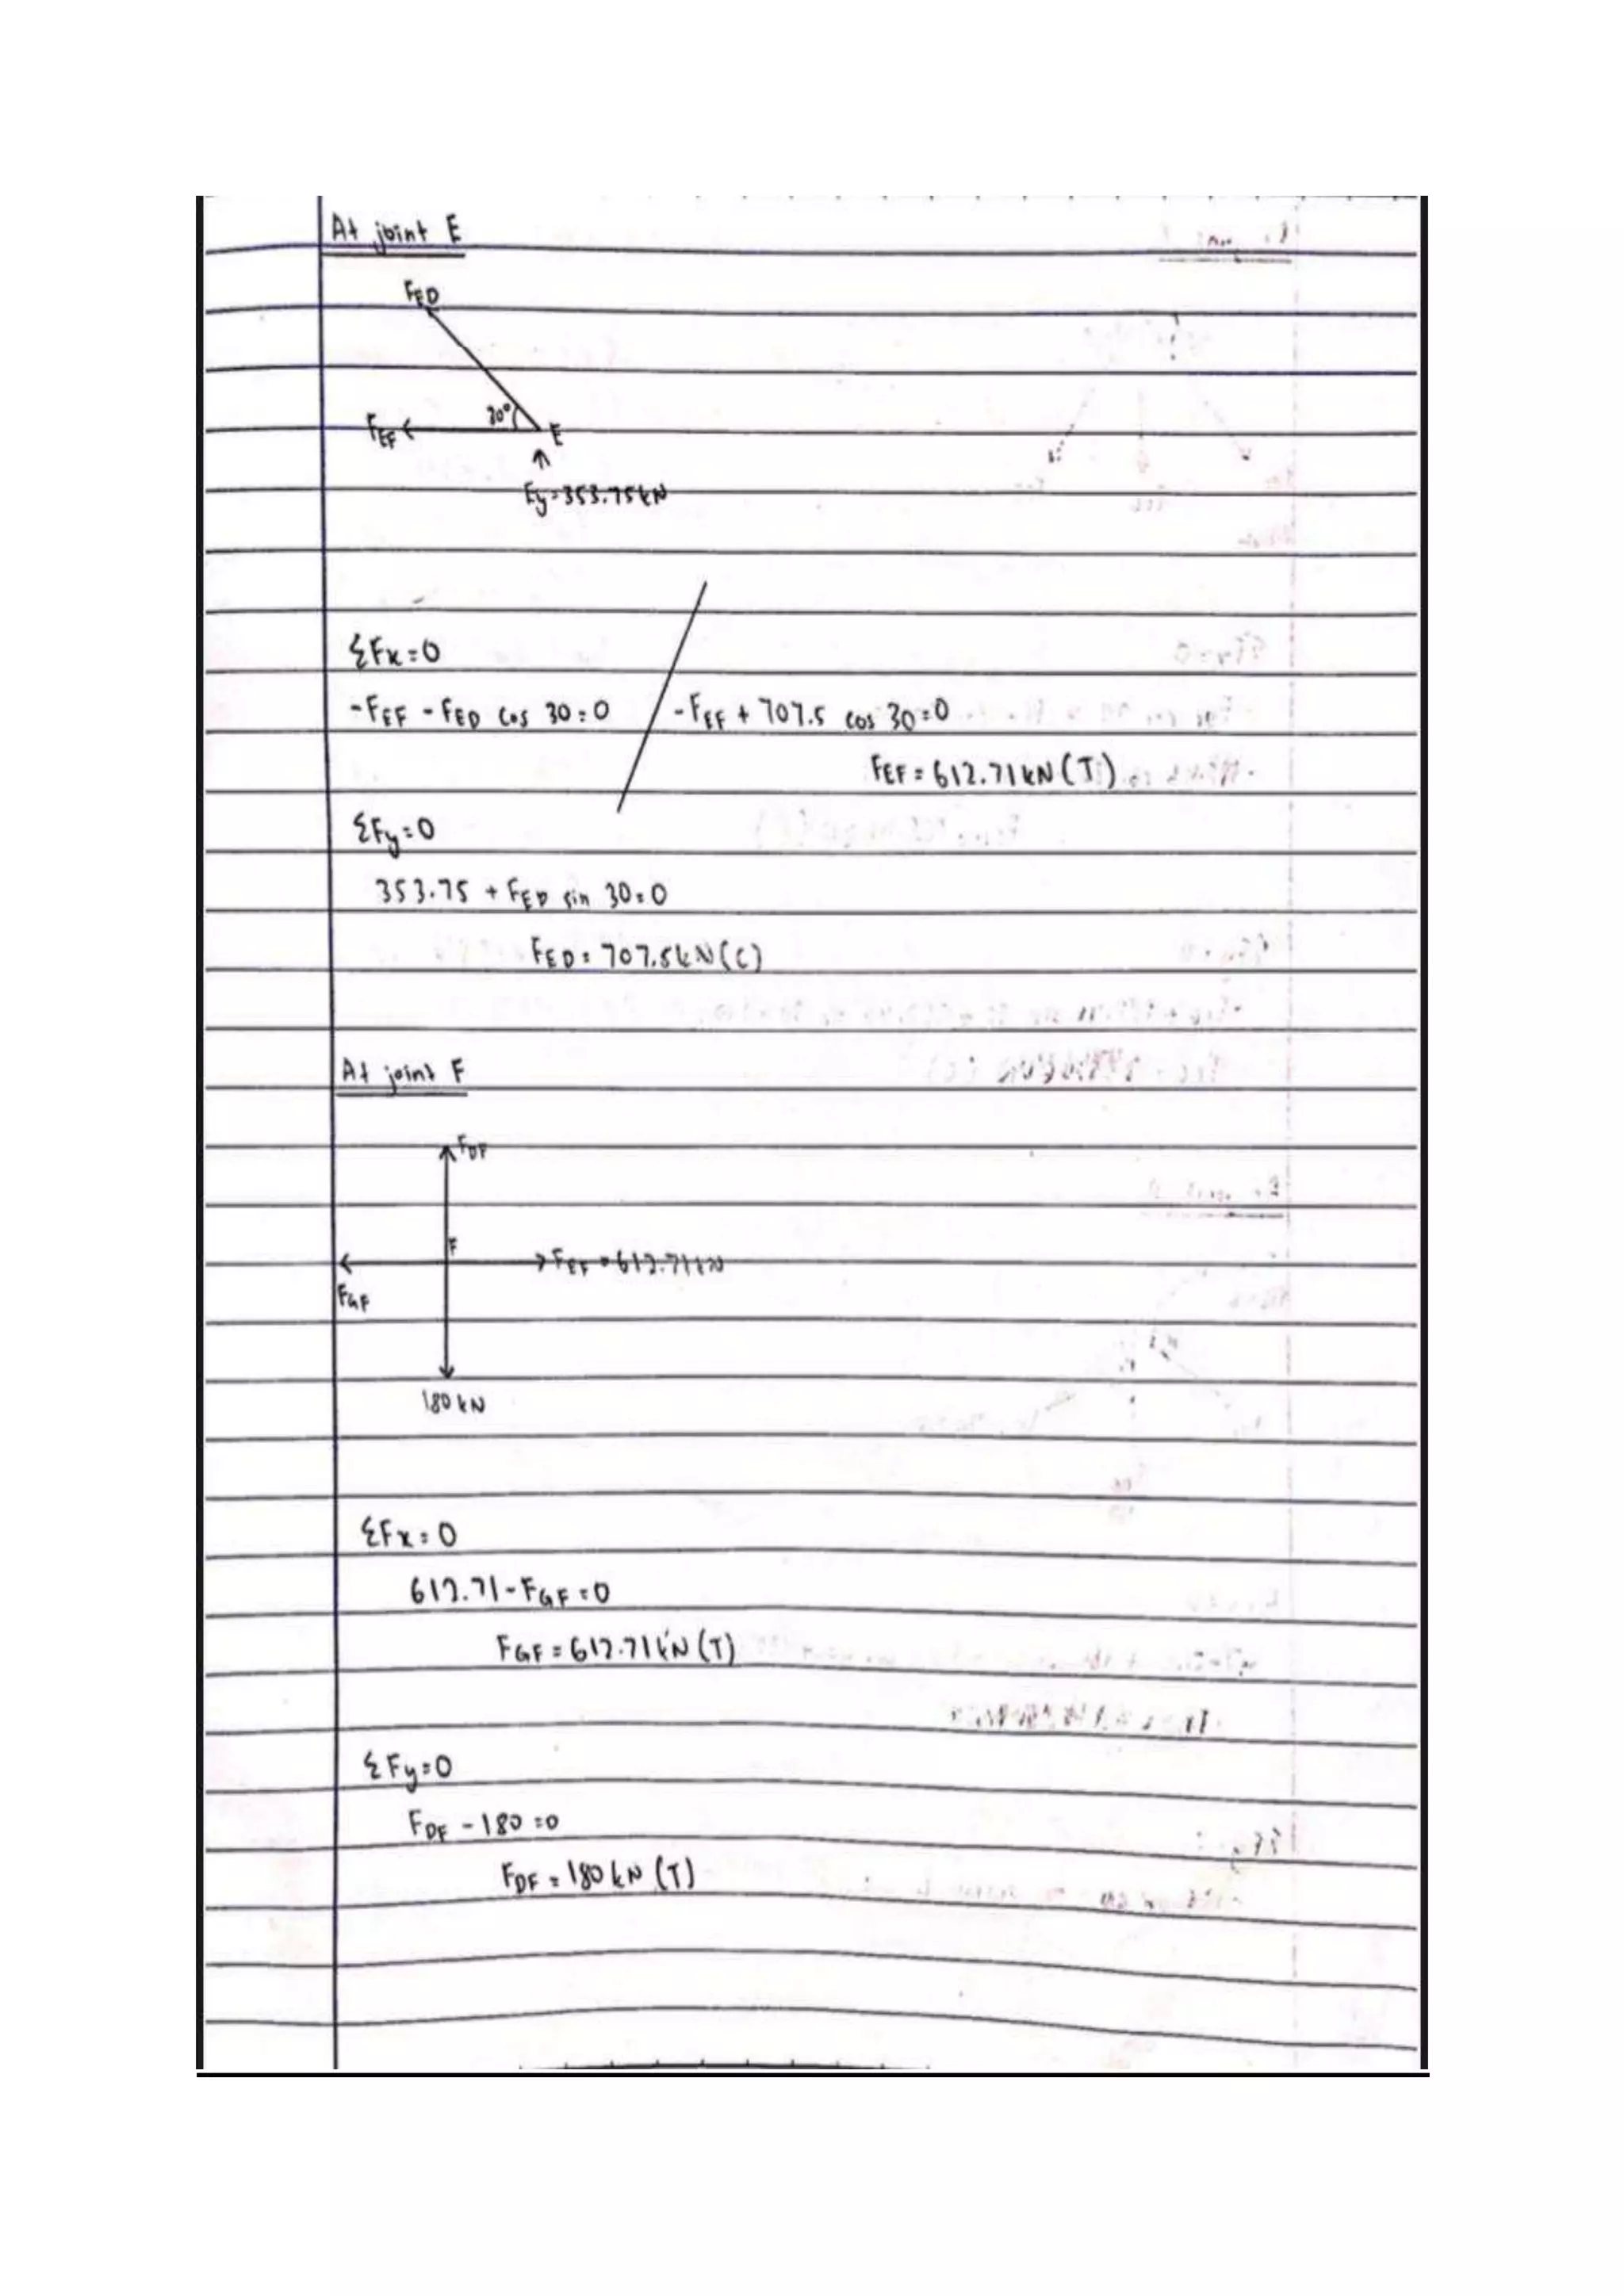 At joint E
FED
30°
FEF
E
Ey=353.75kN
ΣFx=0
-FEF - FED cos 30=0
-FEF + 707.5 cos 30=0
FEF = 612.71kN (T)
ΣFy=0
353.75 + FED sin 30=0
FED= 707.5kN(C)
At joint F
FDF
F
FEF = 612.71kN
FGF
180kN
ΣFx=0
612.71-FGF=0
FGF = 612.71kN (T)
ΣFy=0
FDF - 180 =0
FDF = 180kN (T)